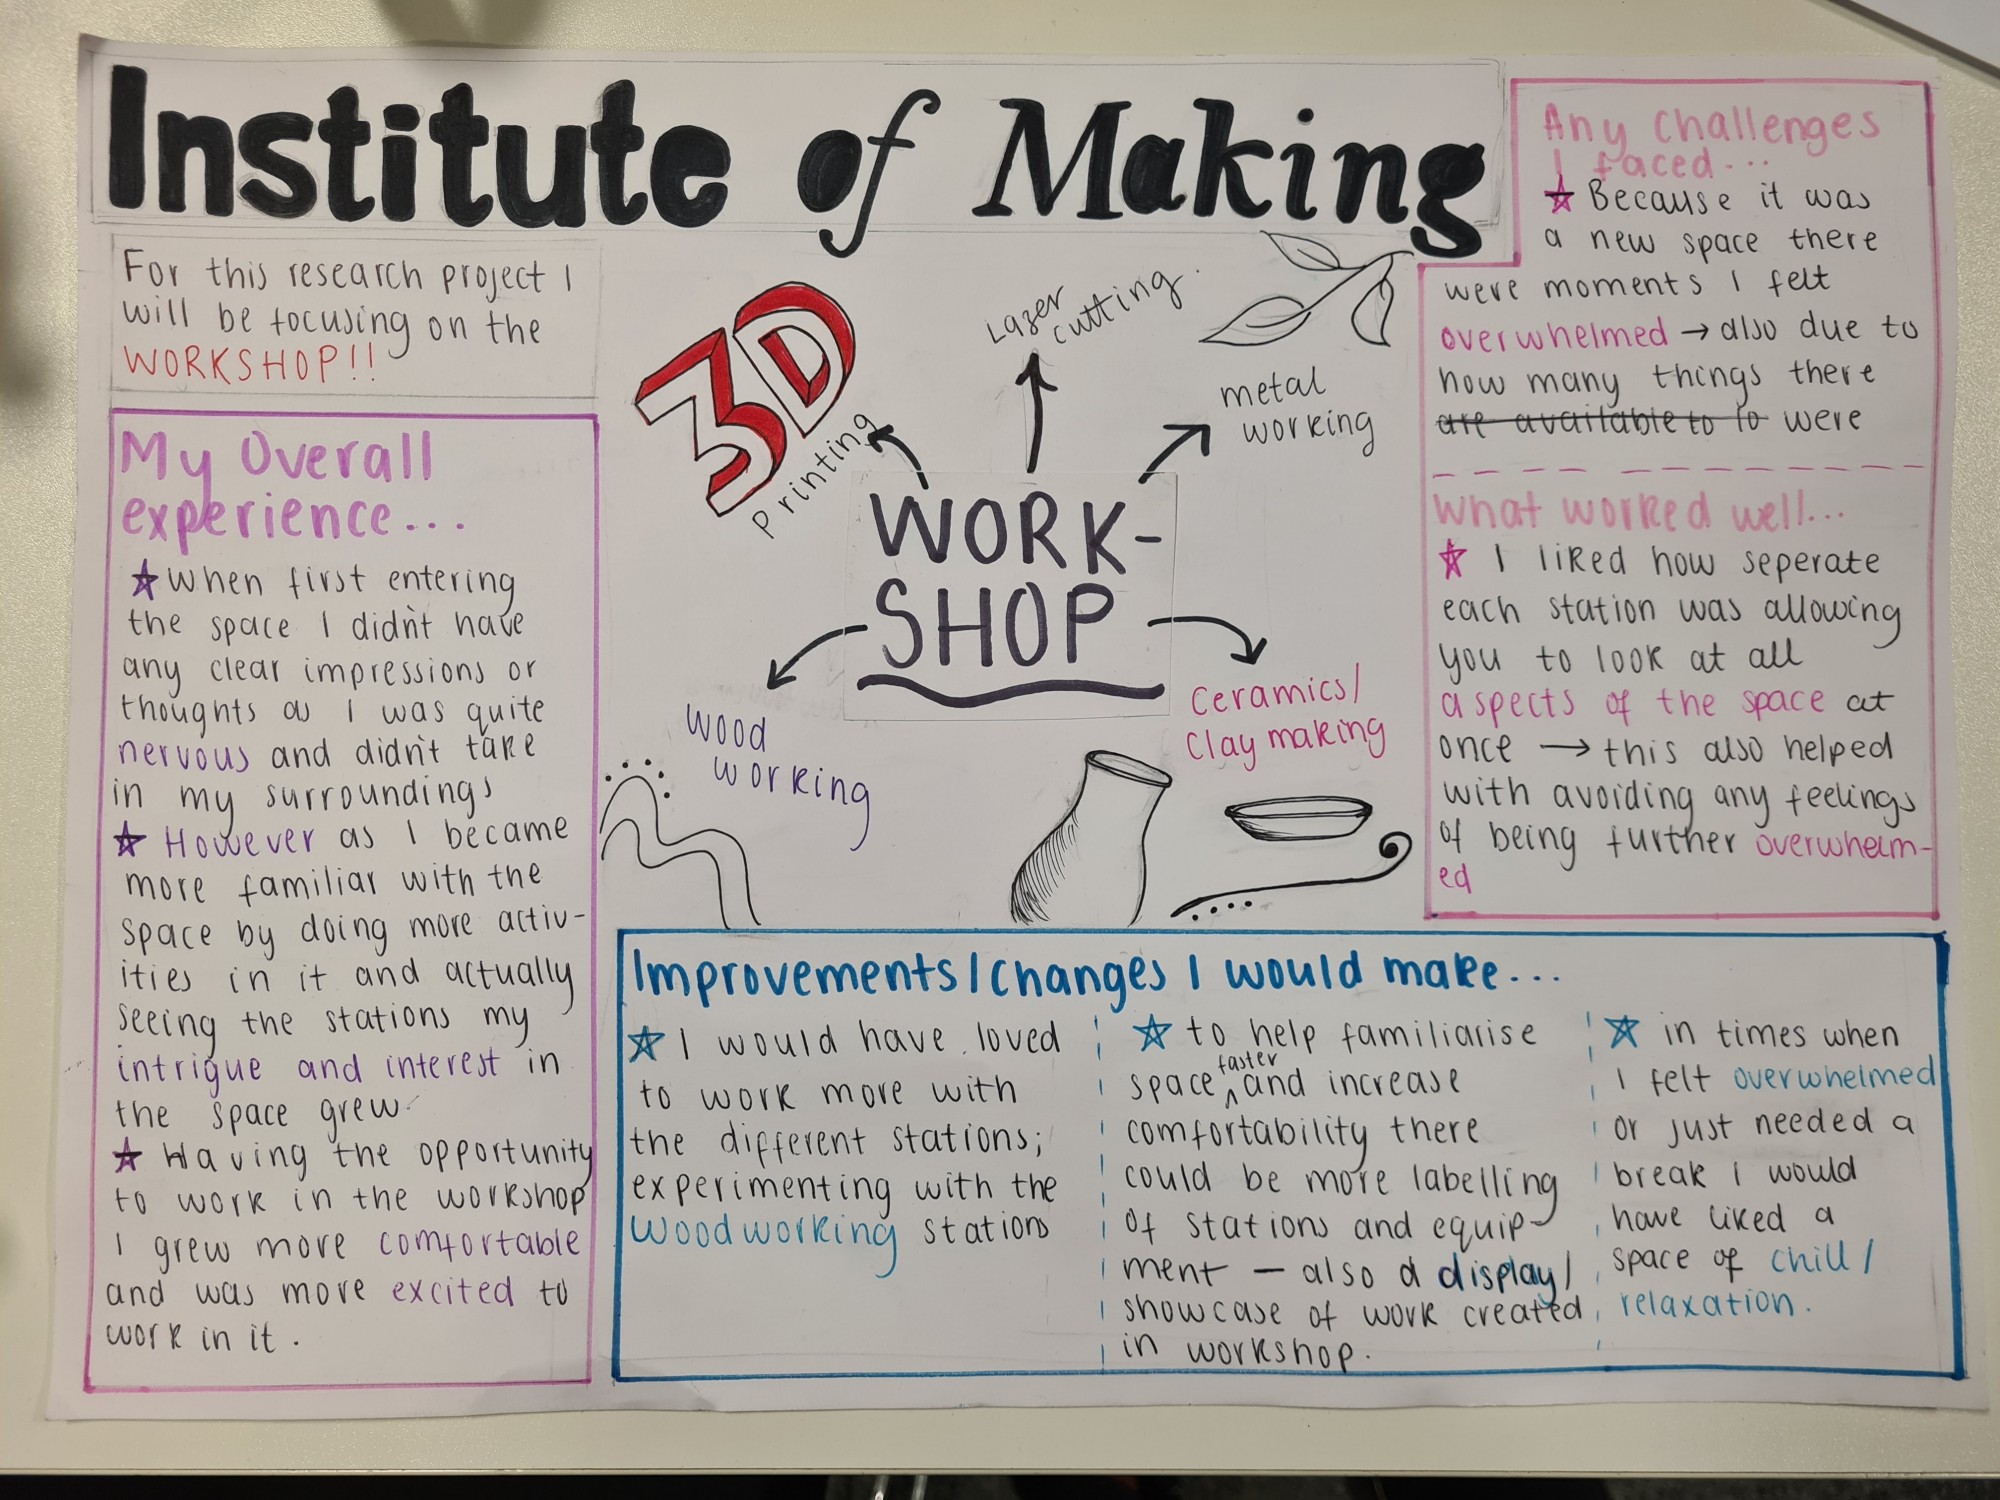 Institute of Making
For this research project I
will be focusing on the
WORKSHOP!!
My Overall
experience...
When first entering
the space I didn't have
any clear impressions or
thoughts as I was quite
nervous and didn't take
in my surroundings
However as I became
more familiar with the
space by doing more activ-
ities in it and actually
seeing the stations my
intrigue and interest in
the space grew
Having the opportunity
to work in the workshop
I grew more comfortable
and was more excited to
work in it.
3D
Printing
Lazer
cutting.
metal
working
WORK-
SHOP
wood
working
Ceramics/
Clay making
Any challenges
I faced...
Because it was
a new space there
were moments I felt
overwhelmed → also due to
how many things there
are available to to were
What worked well...
I liked how seperate
each station was allowing
you to look at all
aspects of the space at
once → this also helped
with avoiding any feelings
of being further overwhelm-
ed
Improvements/changes I would make...
I would have loved
to work more with
the different stations;
experimenting with the
woodworking stations
to help familiarise
faster
space and increase
comfortability there
could be more labelling
of stations and equip-
ment - also a display/
showcase of work created
in workshop.
in times when
I felt overwhelmed
or just needed a
break I would
have liked a
space of chill/
relaxation.